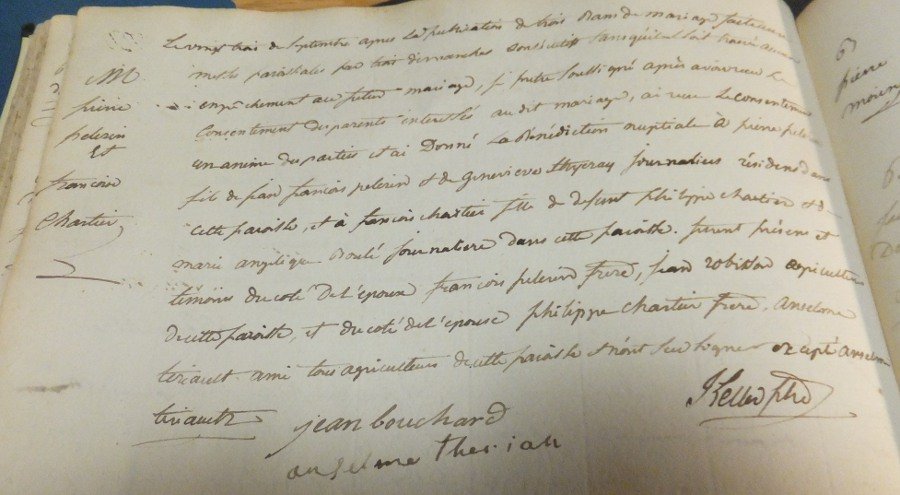 M
pierre
pelerin
Et
francoise
Chartier
Le vingt trois de Septembre apres la publication de trois Bans de mariage faite
messe paroissiales par trois dimanches consecutifs sans qu'il se soit trouvé aucun
empêchement au futur mariage, je pretre soussigné après avoir reçu le
consentement des parents interessés au dit mariage, ai reçu le consentement
unanime des parties et ai Donné La Bénédiction nuptiale à pierre pelerin
fils de jean françois pelerin et de Geneviève journaliers résidens dans
cette paroisse, et à françoise chartier fille de defunt philippe chartier et de
marie angelique Boulé journaliere dans cette paroisse. furent présens et
témoins du coté de l'epoux françois pelerin frere, jean robichaud agriculteur
de cette paroisse, et du coté de l'epouse philippe chartier frere, anselme
tiriault ami tous agriculteurs de cette paroisse et n'ont seu signer excepté anselme
tiriault
jean bouchard
anselme theriau
Keller ptre
6
pierre